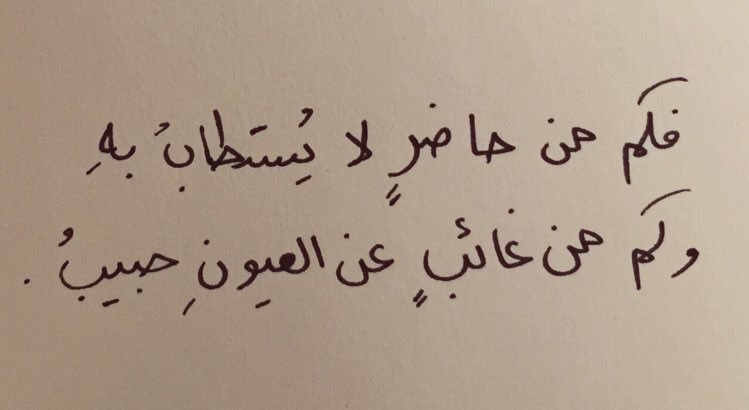 فلكم من حاضرٍ لا يُستطابُ بهِ
وكم من غائبٍ عن العيونِ حبيبُ .